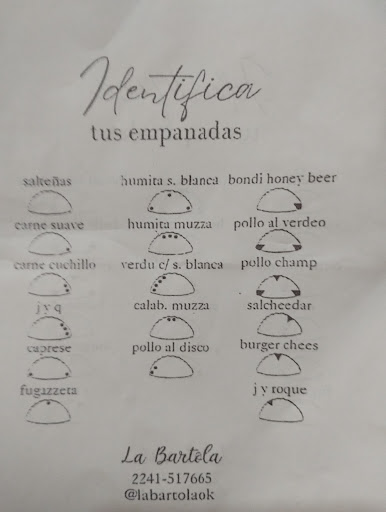 Identifica
tus empanadas
salteñas
humita s. blanca
bondi honey beer
carne suave
humita muzza
pollo al verdeo
carne cuchillo
verdu c/ s. blanca
pollo champ
j y q
calab. muzza
salcheedar
caprese
pollo al disco
burger chees
fugazzeta
j y roque
La Bartola
2241-517665
@labartolaok